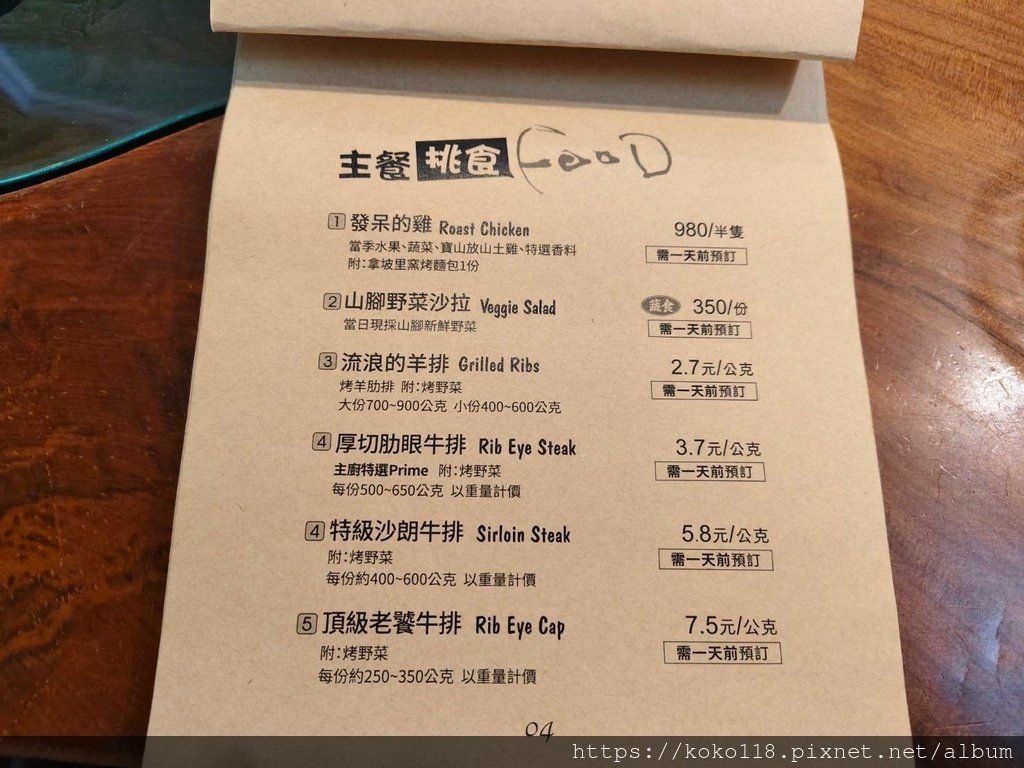 主餐 挑食 FOOD
1 發呆的雞 Roast Chicken 980/半隻
當季水果、蔬菜、寶山放山土雞、特選香料 需一天前預訂
附:拿坡里窯烤麵包1份
2 山腳野菜沙拉 Veggie Salad 蔬食 350/份
當日現採山腳新鮮野菜 需一天前預訂
3 流浪的羊排 Grilled Ribs 2.7元/公克
烤羊肋排 附:烤野菜 需一天前預訂
大份700~900公克 小份400~600公克
4 厚切肋眼牛排 Rib Eye Steak 3.7元/公克
主廚特選Prime 附:烤野菜 需一天前預訂
每份500~650公克 以重量計價
4 特級沙朗牛排 Sirloin Steak 5.8元/公克
附:烤野菜 需一天前預訂
每份約400~600公克 以重量計價
5 頂級老饕牛排 Rib Eye Cap 7.5元/公克
附:烤野菜 需一天前預訂
每份約250~350公克 以重量計價
04
https://koko118.pixnet.net/album